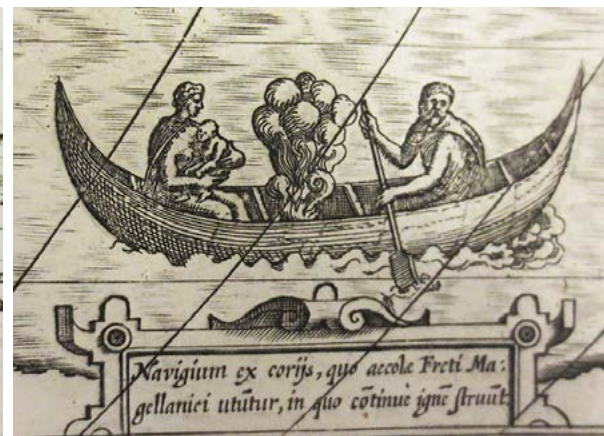 Navigium ex corijs, quo accolæ Freti Ma-
gellanici utũtur, in quo cõtinuè ignẽ ſtruũt